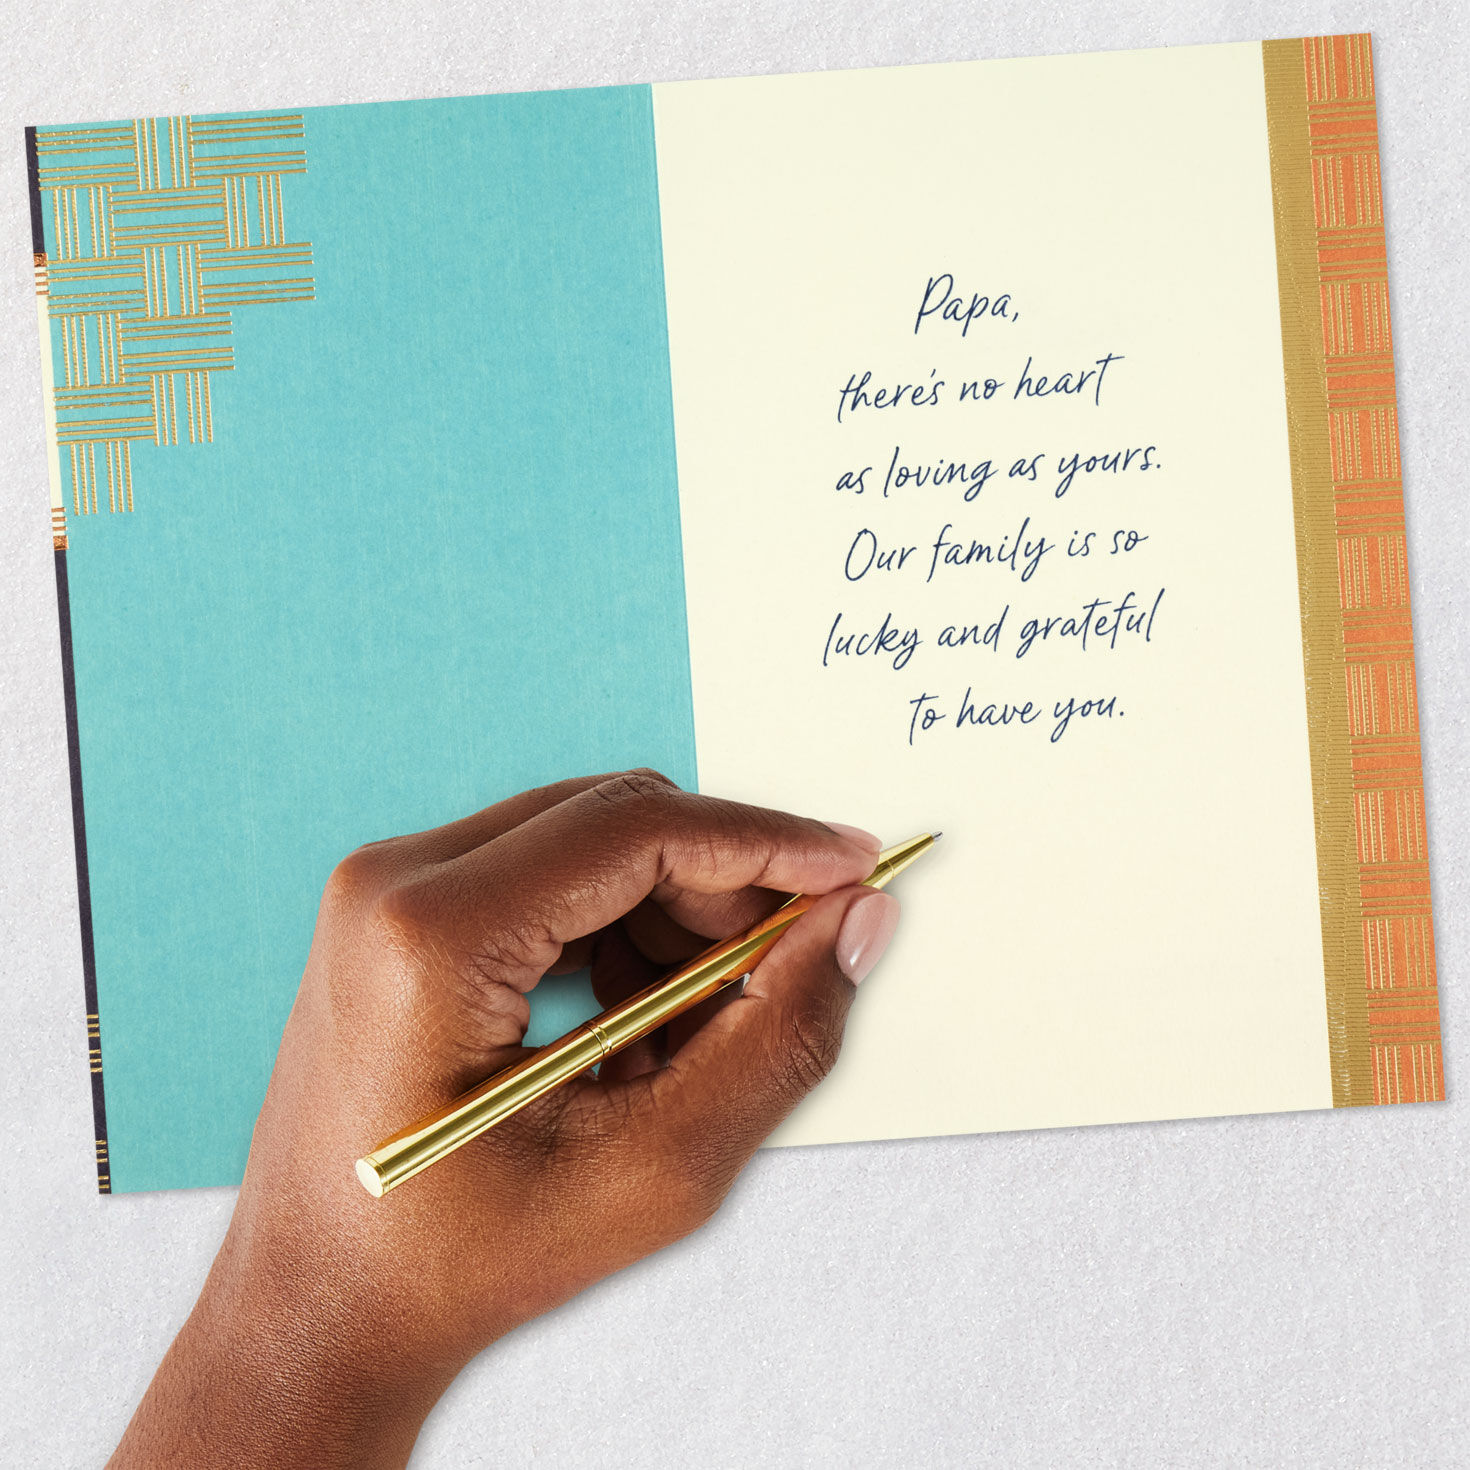 Papa,
there's no heart
as loving as yours.
Our family is so
lucky and grateful
to have you.